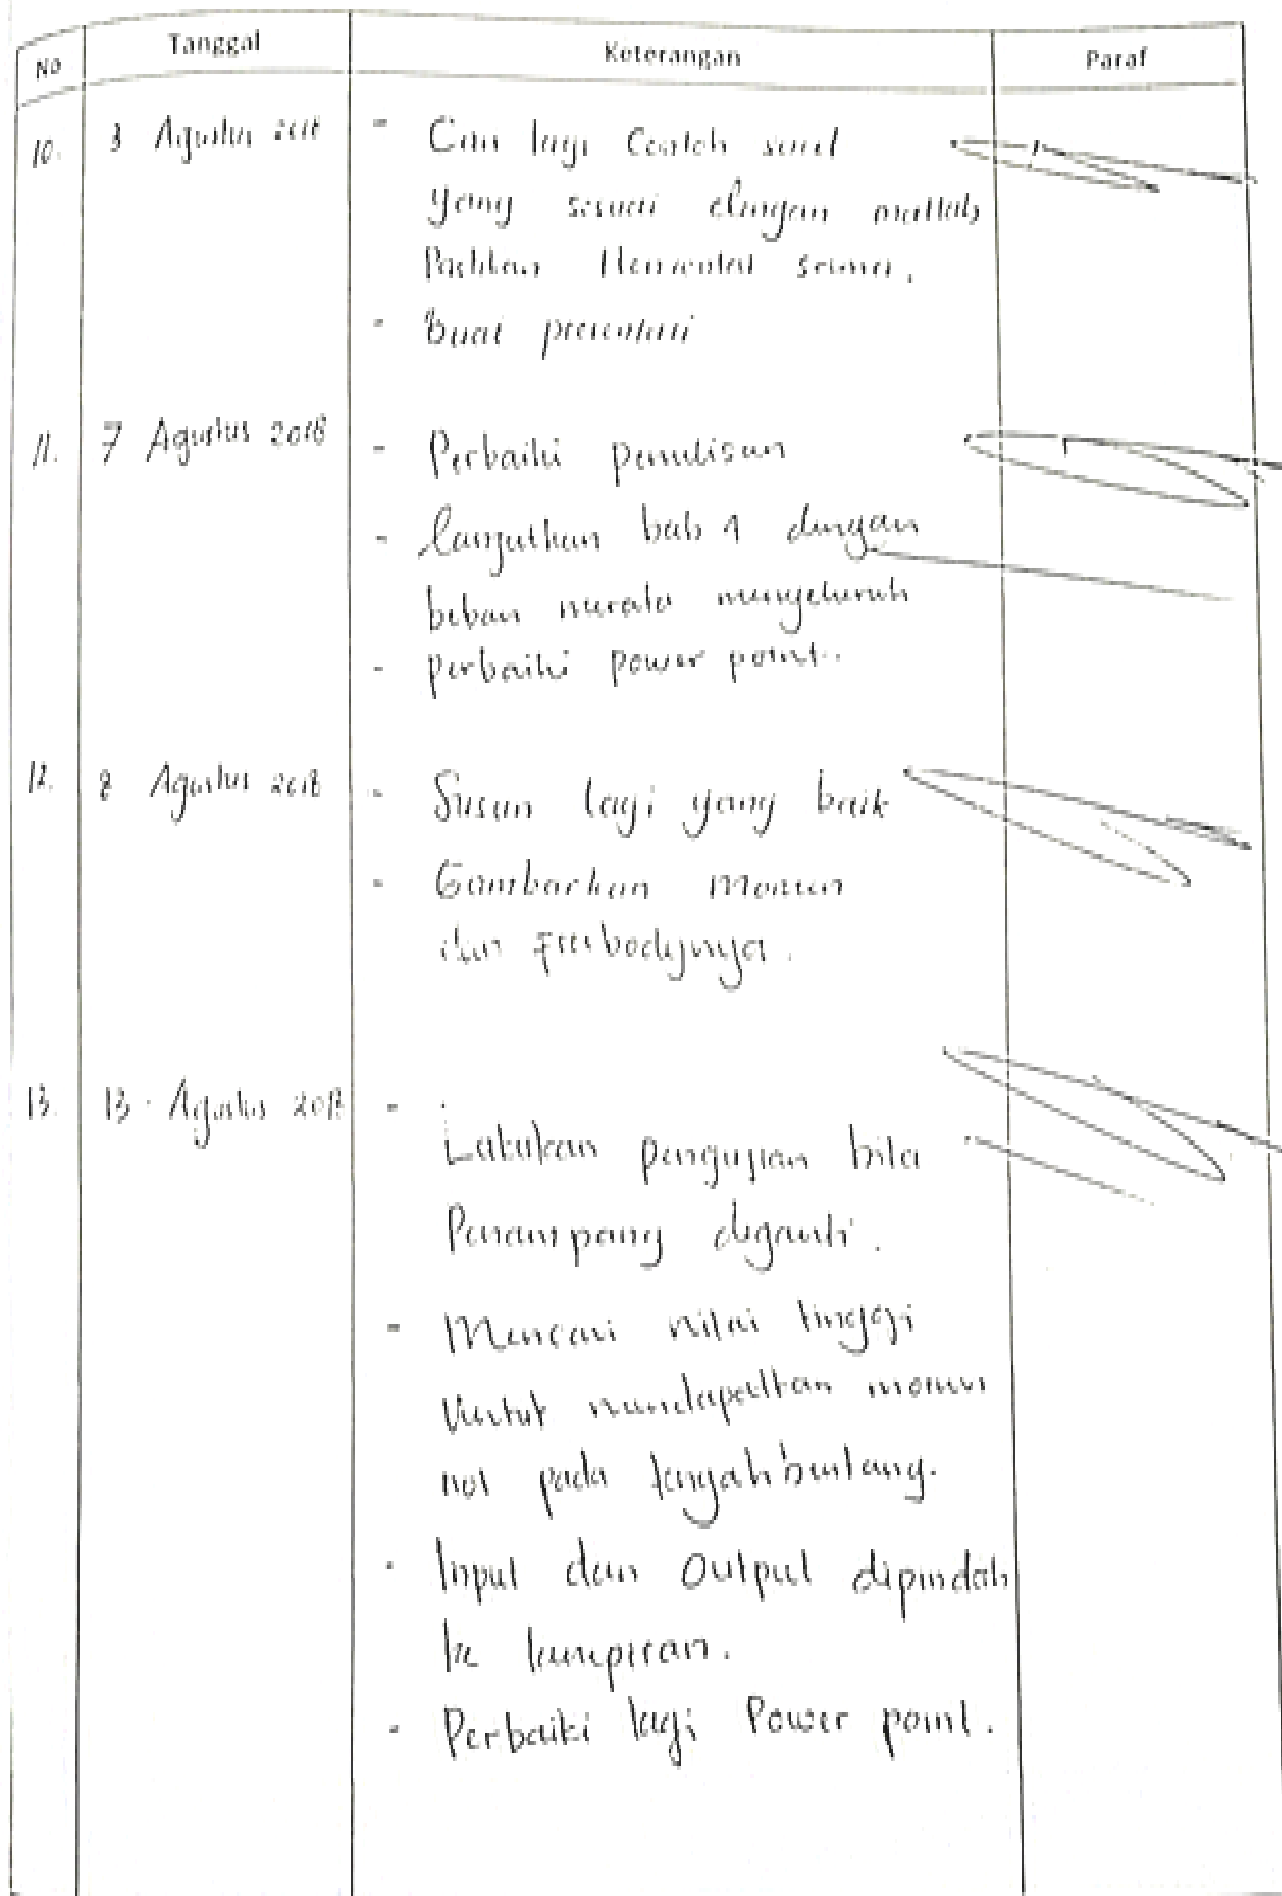 No Tanggal Keterangan Paraf
10. 3 Agustus 2018 - Cari lagi Contoh soal
yang sesuai dengan
Pastikan Horizontal sama.
- Buat presentasi
11. 7 Agustus 2018 - Perbaiki penulisan
- Lanjutkan bab 4 dengan
beban merata menyeluruh
- perbaiki power point.
12. 8 Agustus 2018 - Susun lagi yang baik
- Gambarkan Momen
dan freebodynya.
13. 13 Agustus 2018 - Lakukan pengujian bila
Penampang diganti.
- Mencari nilai tinggi
Untuk mendapatkan momen
nol pada tengah bentang.
- Input dan Output dipindah
ke lampiran.
- Perbaiki lagi Power point.